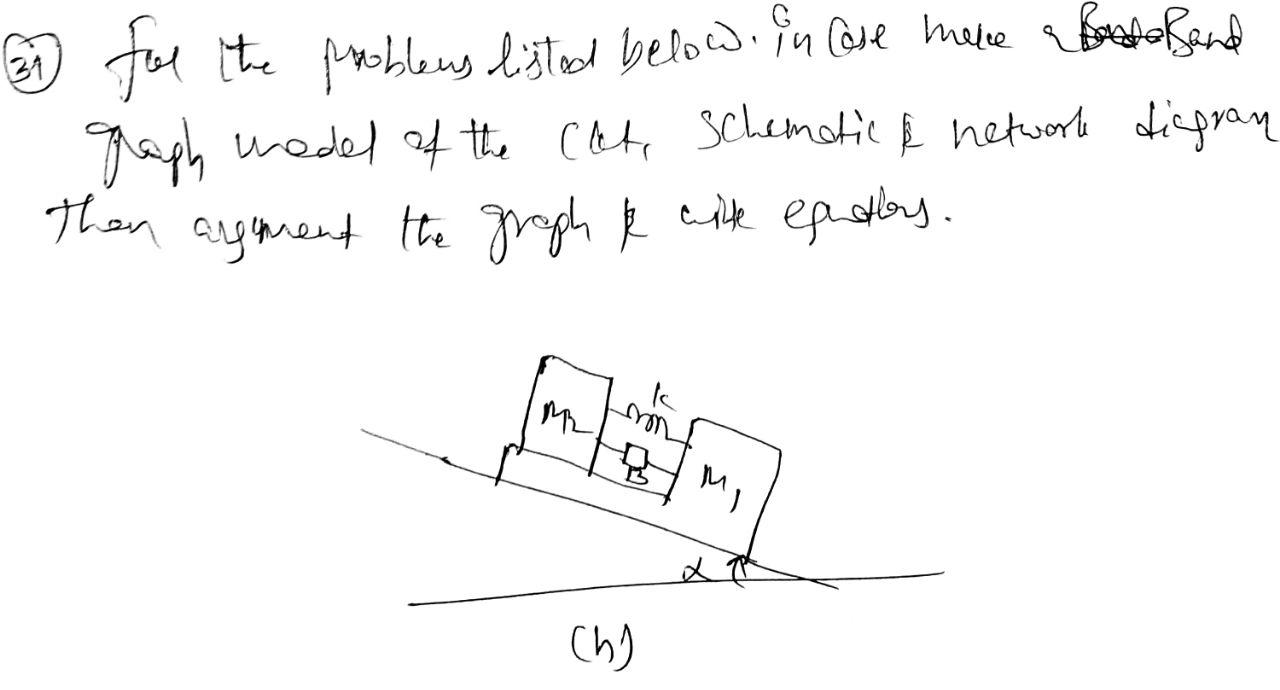 31) For the problems listed below. in Case make a Band
graph model of the Ckt, Schematic & network diagram
Then argument the graph & write equations.
k
M2
B
M1
α
(h)